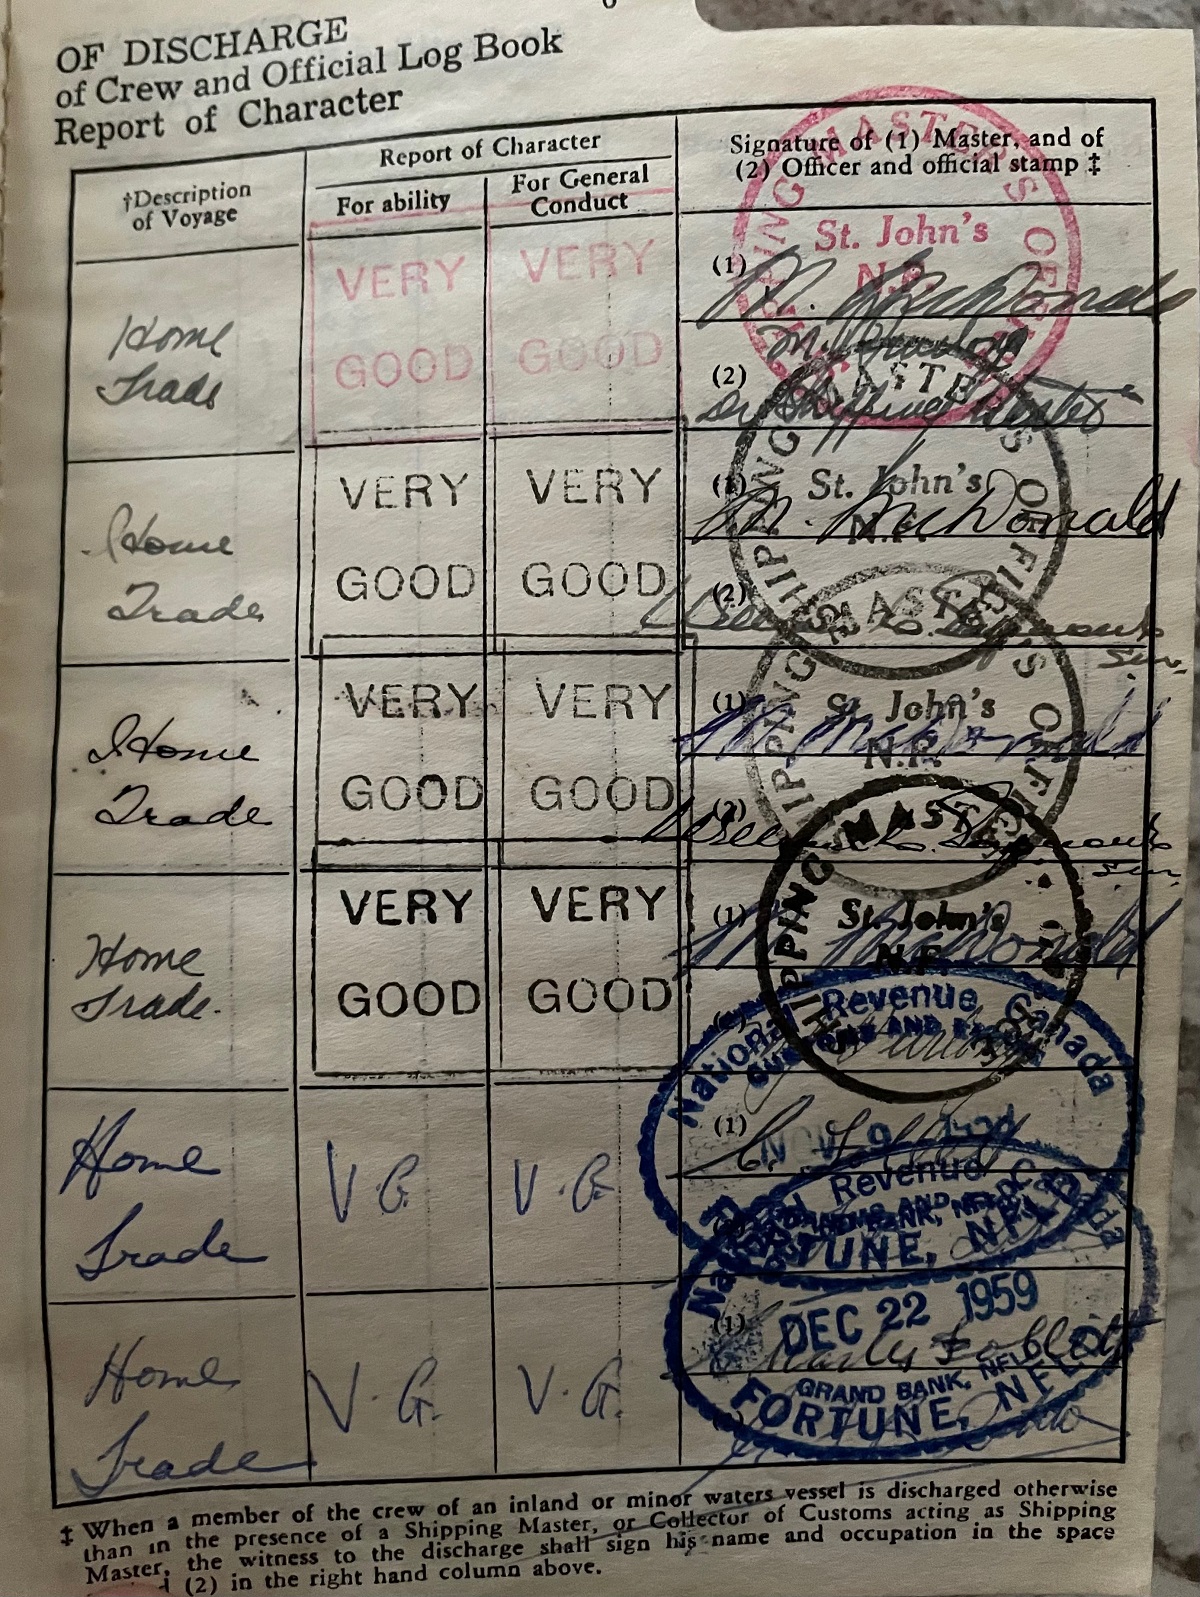 6
OF DISCHARGE
of Crew and Official Log Book
Report of Character
†Description
of Voyage
Report of Character
For ability
For General
Conduct
Signature of (1) Master, and of
(2) Officer and official stamp ‡
Home
Trade
VERY
GOOD
VERY
GOOD
SHIPPING MASTER'S OFFICE
St. John's
N.F.
(1)
M. McDonald
(2)
Shipping Master
Home
Trade
VERY
GOOD
VERY
GOOD
SHIPPING MASTER'S OFFICE
St. John's
N.F.
(1)
M. McDonald
(2)
Home
Trade
VERY
GOOD
VERY
GOOD
SHIPPING MASTER'S OFFICE
St. John's
N.F.
(1)
M. McDonald
(2)
Home
Trade.
VERY
GOOD
VERY
GOOD
SHIPPING MASTER'S OFFICE
St. John's
N.F.
(1)
M. McDonald
Home
Trade
V.G.
V.G.
National Revenue Canada
CUSTOMS AND EXCISE
(1)
NOV
GRAND BANK, NFLD
FORTUNE, NFLD
Home
Trade
V.G.
V.G.
National Revenue Canada
CUSTOMS AND
(1)
DEC 22 1959
GRAND BANK, NFLD
FORTUNE, NFLD
‡ When a member of the crew of an inland or minor waters vessel is discharged otherwise
than in the presence of a Shipping Master, or Collector of Customs acting as Shipping
Master, the witness to the discharge shall sign his name and occupation in the space
(2) in the right hand column above.